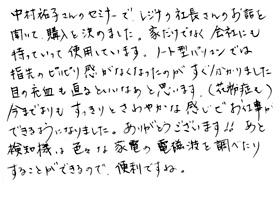 中村祐子さんのセミナーで、レジナの社長さんのお話を
聞いて、購入を決めました。家だけでなく会社にも
持っていって使用しています。ノート型パソコンでは
指先のビリビリ感がなくなったのがすぐ分かりました
目の充血も直るといいなぁと思います。(花粉症も)
今までよりもすっきりとさわやかな感じでお仕事が
できるようになりました。ありがとうございます!! あと
検知機は色々な家電の電磁波を調べたり
することができるので、便利ですね。